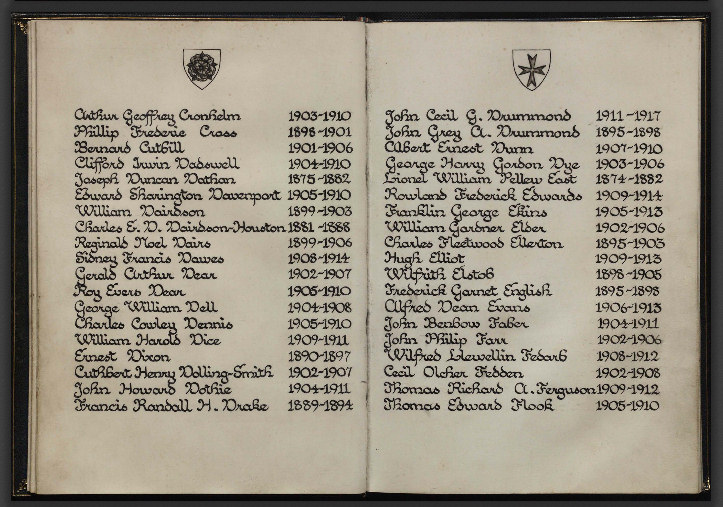 Arthur Geoffrey Cronhelm 1903-1910
Phillip Frederic Cross 1898-1901
Bernard Cuthill 1901-1906
Clifford Irwin Dadswell 1904-1910
Joseph Duncan Dathan 1875-1882
Edward Sharington Davenport 1905-1910
William Davidson 1899-1903
Charles E. D. Davidson-Houston 1881-1888
Reginald Noel Davis 1899-1906
Sidney Francis Dawes 1908-1914
Gerald Arthur Dear 1902-1907
Roy Evers Dear 1905-1910
George William Dell 1904-1908
Charles Cowley Dennis 1905-1910
William Harold Dice 1909-1911
Ernest Dixon 1890-1897
Cuthbert Henry Dolling-Smith 1902-1907
John Howard Dothie 1904-1911
Francis Randall H. Drake 1889-1894
John Cecil G. Drummond 1911-1917
John Grey A. Drummond 1895-1898
Albert Ernest Dunn 1907-1910
George Harry Gordon Dye 1903-1906
Lionel William Pellew East 1874-1882
Rowland Frederick Edwards 1909-1914
Franklin George Ekins 1905-1913
William Gardner Elder 1902-1906
Charles Fleetwood Ellerton 1895-1903
Hugh Elliot 1909-1913
Wilfrith Elstob 1898-1905
Frederick Garnet English 1895-1898
Alfred Dean Evans 1906-1913
John Benbow Faber 1904-1911
John Philip Farr 1902-1906
Wilfred Llewellin Fedarb 1908-1912
Cecil Olcher Fedden 1902-1908
Thomas Richard A. Ferguson 1909-1912
Thomas Edward Flook 1905-1910